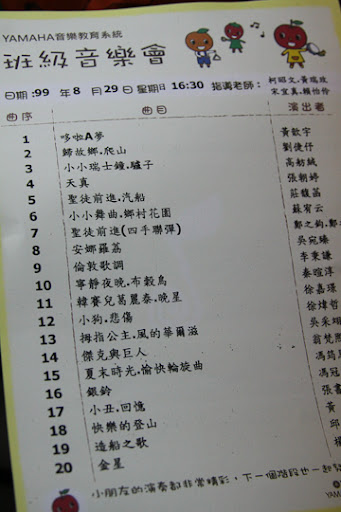 YAMAHA音樂教育系統
班級音樂會
日期:99 年 8 月 29 日 星期日 16:30 指導老師: 柯昭文.黃瑞玫
宋宜真.賴怡伶
曲序 曲目 演出者
1 哆啦A夢 黃歆宇
2 歸故鄉.爬山 劉倢伃
3 小小瑞士鐘.驢子 高舫絨
4 天真 張朝婷
5 聖徒前進.汽船 莊馥菡
6 小小舞曲.鄉村花園 蘇宥云
7 聖徒前進(四手聯彈) 鄭之鈞.鄭
8 安娜羅荔 吳宛臻
9 倫敦歌調 李秉謙
10 寧靜夜晚.布穀鳥 秦暄淳
11 韓賽兒葛麗泰.晚星 徐嘉璟
12 小狗.悲傷 徐煒哲
13 拇指公主.風的華爾滋 吳采
14 傑克與巨人 翁梵
15 夏末時光.愉快輪旋曲 馮筠
16 銀鈴 馮冠
17 小丑.回憶 張書
18 快樂的登山 黃
19 造船之歌 邱
20 金星 楊
小朋友的演奏都非常精彩，下一個階段也一起
YAM